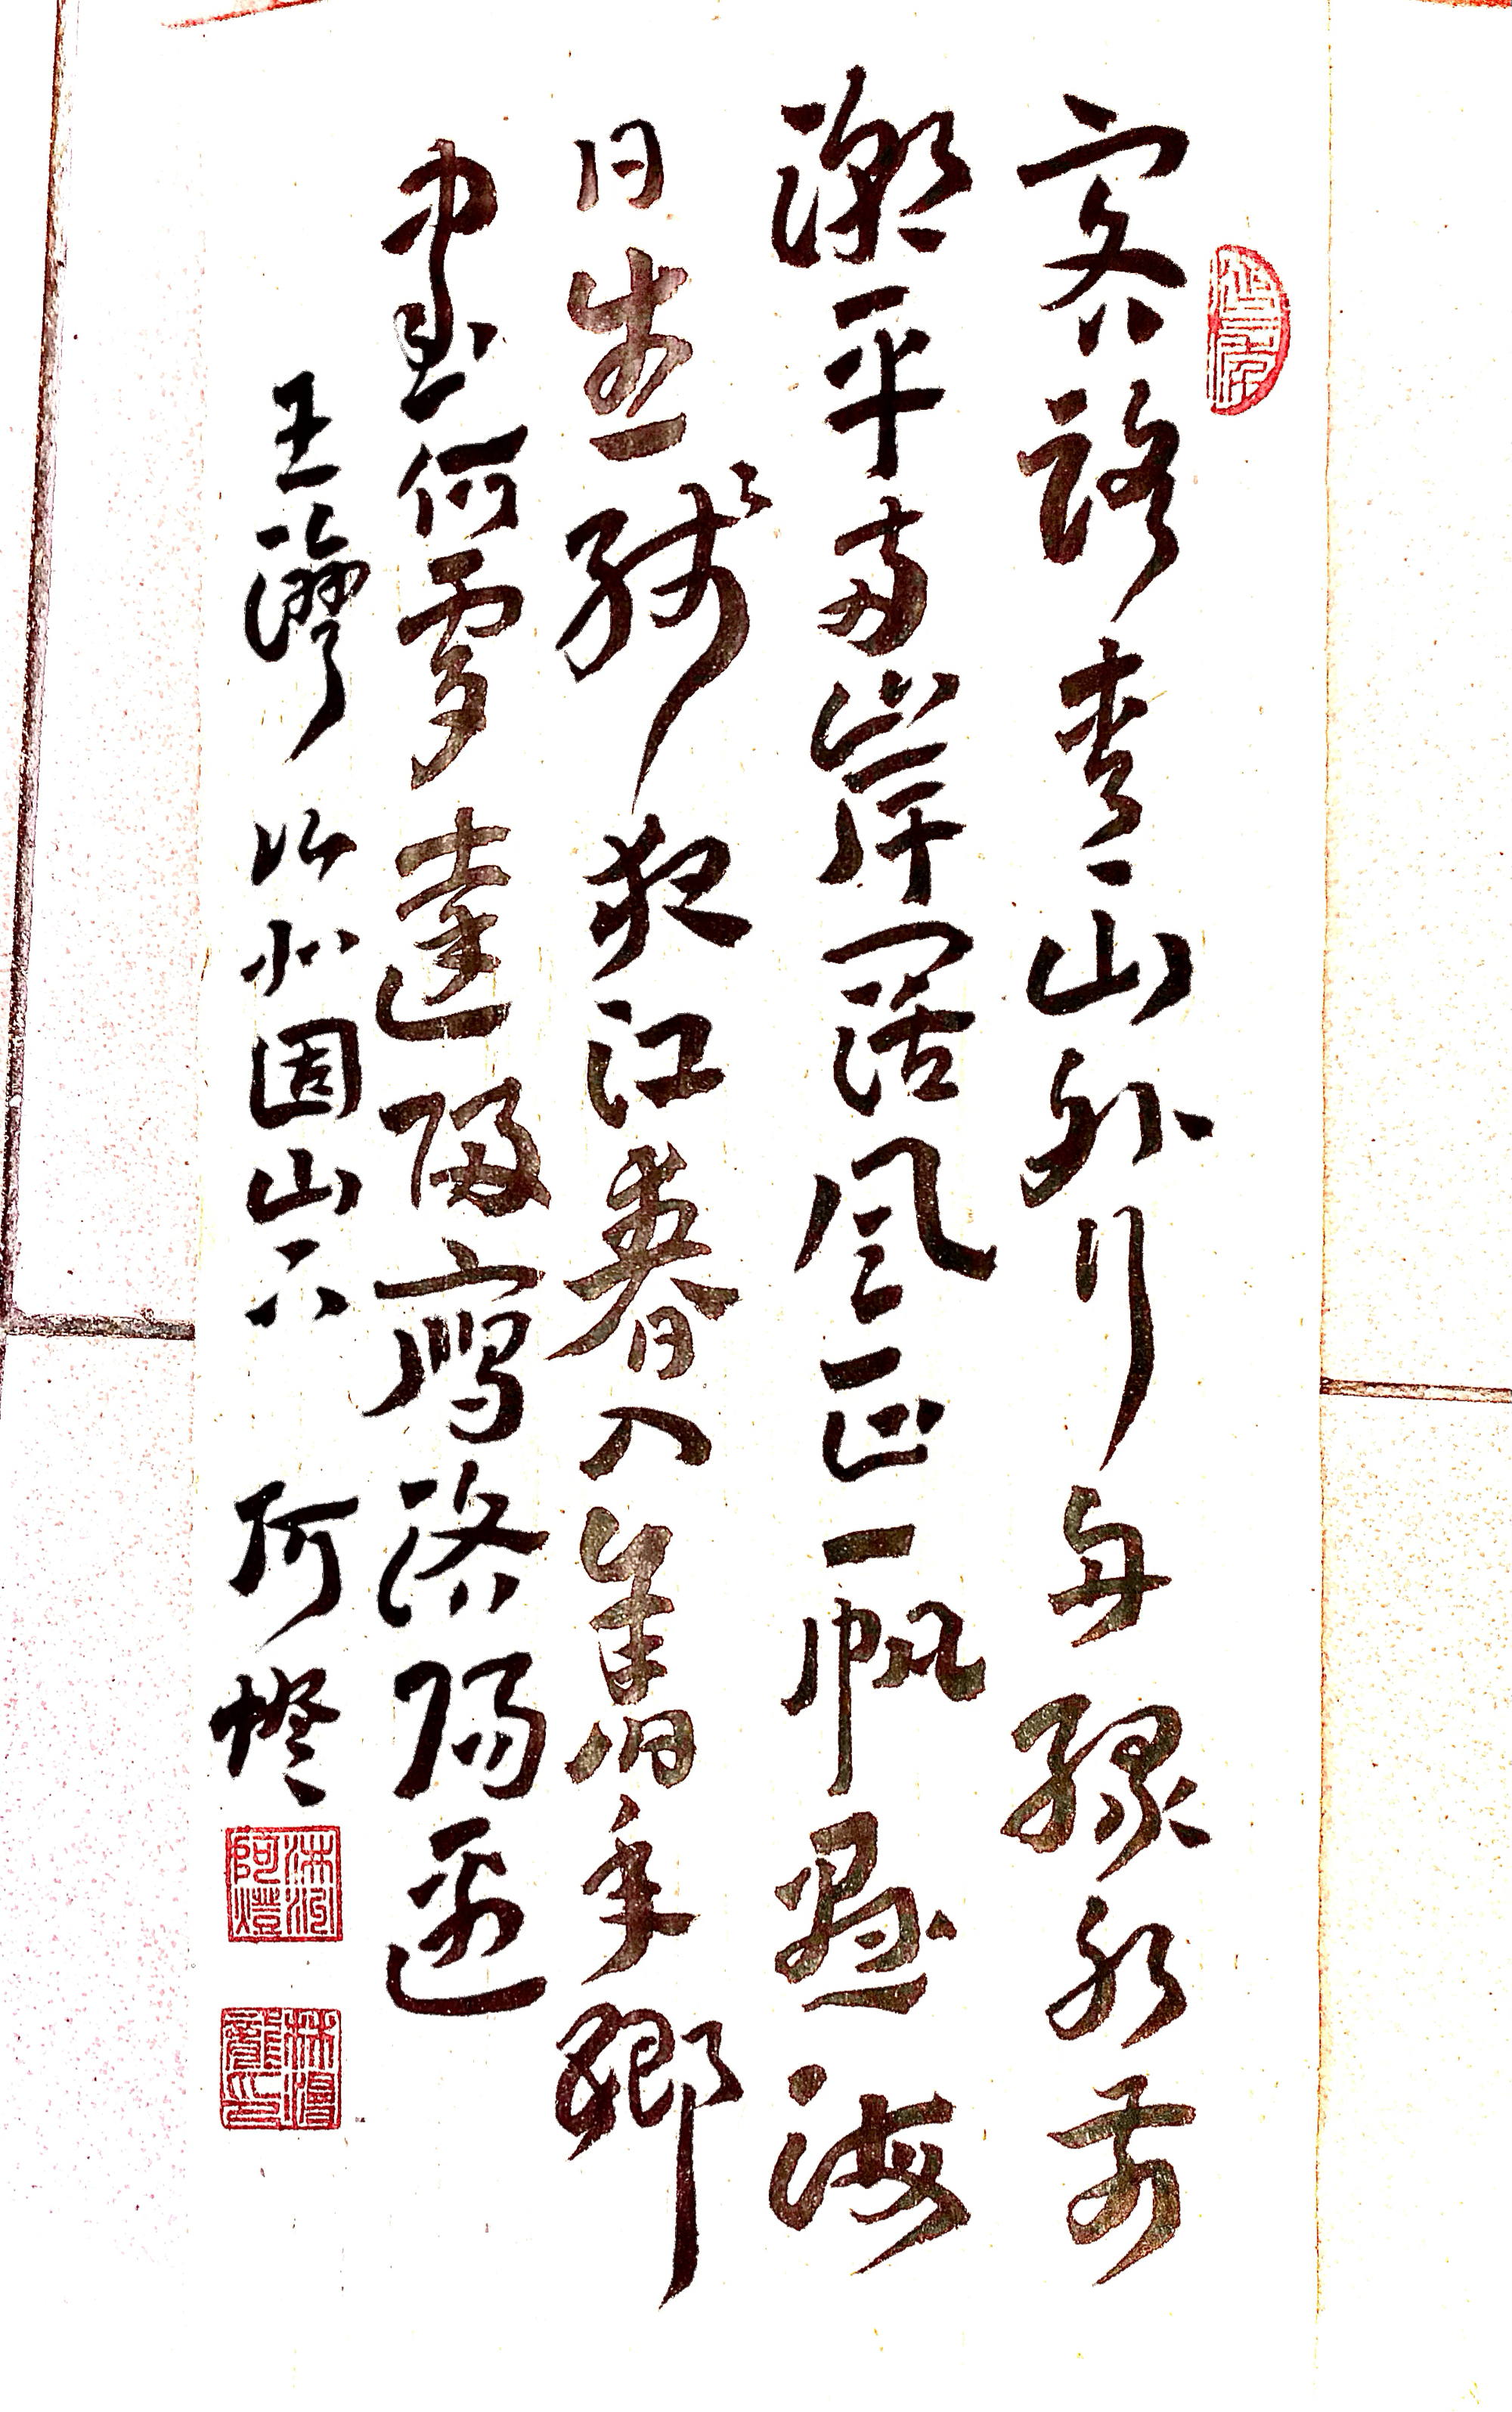 客路青山外行舟綠水前
潮平兩岸闊風正一帆懸海
日生殘夜江春入舊年鄉
書何處達歸雁洛陽邊
王灣次北固山下 阿燈